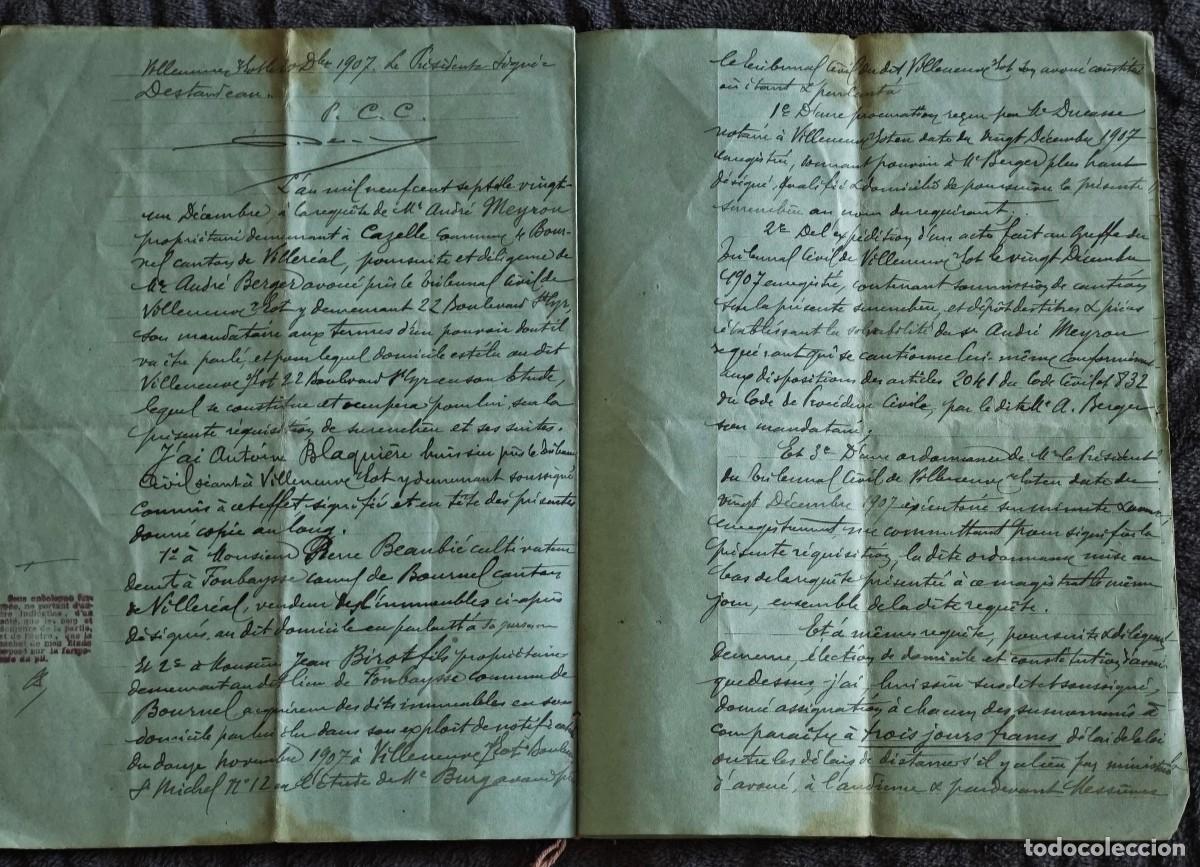 Villeneuve s/Lot le 20 Dbre 1907. Le Président Signé:
Destandeau.
P. C. C.
L'an mil neuf cent sept le vingt-
un Décembre, à la requête de Mr André Meyron
propriétaire demeurant à Cazelle commune de Bour-
nel canton de Villeréal, poursuite et diligence de
Me André Berger avoué près le tribunal Civil de
Villeneuve s/Lot y demeurant 22 Boulevard St Cyr,
son mandataire aux termes d'un pouvoir dont il
va être parlé, et pour lequel domicile est élu au dit
Villeneuve s/Lot 22 Boulevard St Cyr en son Etude,
lequel se constitue et occupera pour lui sur la
présente réquisition de surenchère et ses suites.
J'ai Antoine Blaquière huissier près le tribunal
Civil séant à Villeneuve s/Lot y demeurant soussigné
Commis à cet effet signifié et en tête des présentes
donné copie au long.
1º à Monsieur Pierre Beaubié cultivateur
demt à Tonbaysse Comne de Bournel canton
de Villeréal, vendeur des immeubles ci-après
désignés, au dit domicile en parlant à sa personne
Et 2º à Monsieur Jean Birot fils propriétaire
demeurant au dit lieu de Tonbaysse commune de
Bournel acquéreur des dits immeubles en son
domicile par lui élu dans son exploit de notification
du douze novembre 1907 à Villeneuve s/Lot Boulevard
St Michel Nº 12 en l'étude de Me Burg avoué
Sous enveloppe fer-
mée, ne portant d'au-
tre indication, d'un
côté, que les nom et
demeure de la partie,
et de l'autre, que le
cachet de mon Etude
apposé sur la ferme-
ture du pli.
le tribunal Civil du dit Villeneuve s/Lot son avoué constitué
où étant & parlant à
1º D'une procuration reçue par Me Ducasse
notaire à Villeneuve s/Lot en date du vingt Décembre 1907
Enregistré, donnant pouvoir à Me Berger plus haut
désigné, qualifié & domicilié de poursuivre la présente
surenchère au nom du requérant.
2º De l'expédition d'un acte fait au Greffe du
Tribunal Civil de Villeneuve s/Lot le vingt Décembre
1907 enregistré, contenant soumission de caution
sur la présente surenchère, et dépôt des titres & pièces
établissant la solvabilité du sr André Meyron
requérant qui se cautionne lui-même conformément
aux dispositions des articles 2041 du Code Civil et 832
du Code de Procédure Civile, par le dit Me A. Berger
son mandataire.
Et 3º D'une ordonnance de Mr le Président
du tribunal Civil de Villeneuve s/Lot en date du
vingt Décembre 1907 exécutoire sur minute & avant
enregistrement me committant pour signifier la
présente réquisition, la dite ordonnance mise au
bas de la requête présentée à ce magistrat le même
jour, ensemble de la dite requête.
Et à même requête, poursuite & diligence
demeure, élection de domicile et constitution d'avoué
que dessus, j'ai, huissier susdit et soussigné,
donné assignation à chacun des susnommés à
comparaître à trois jours francs délai de la loi
outre les délais de distance s'il y a lieu par ministère
d'avoué, à l'audience & pardevant Messieurs
todocoleccion